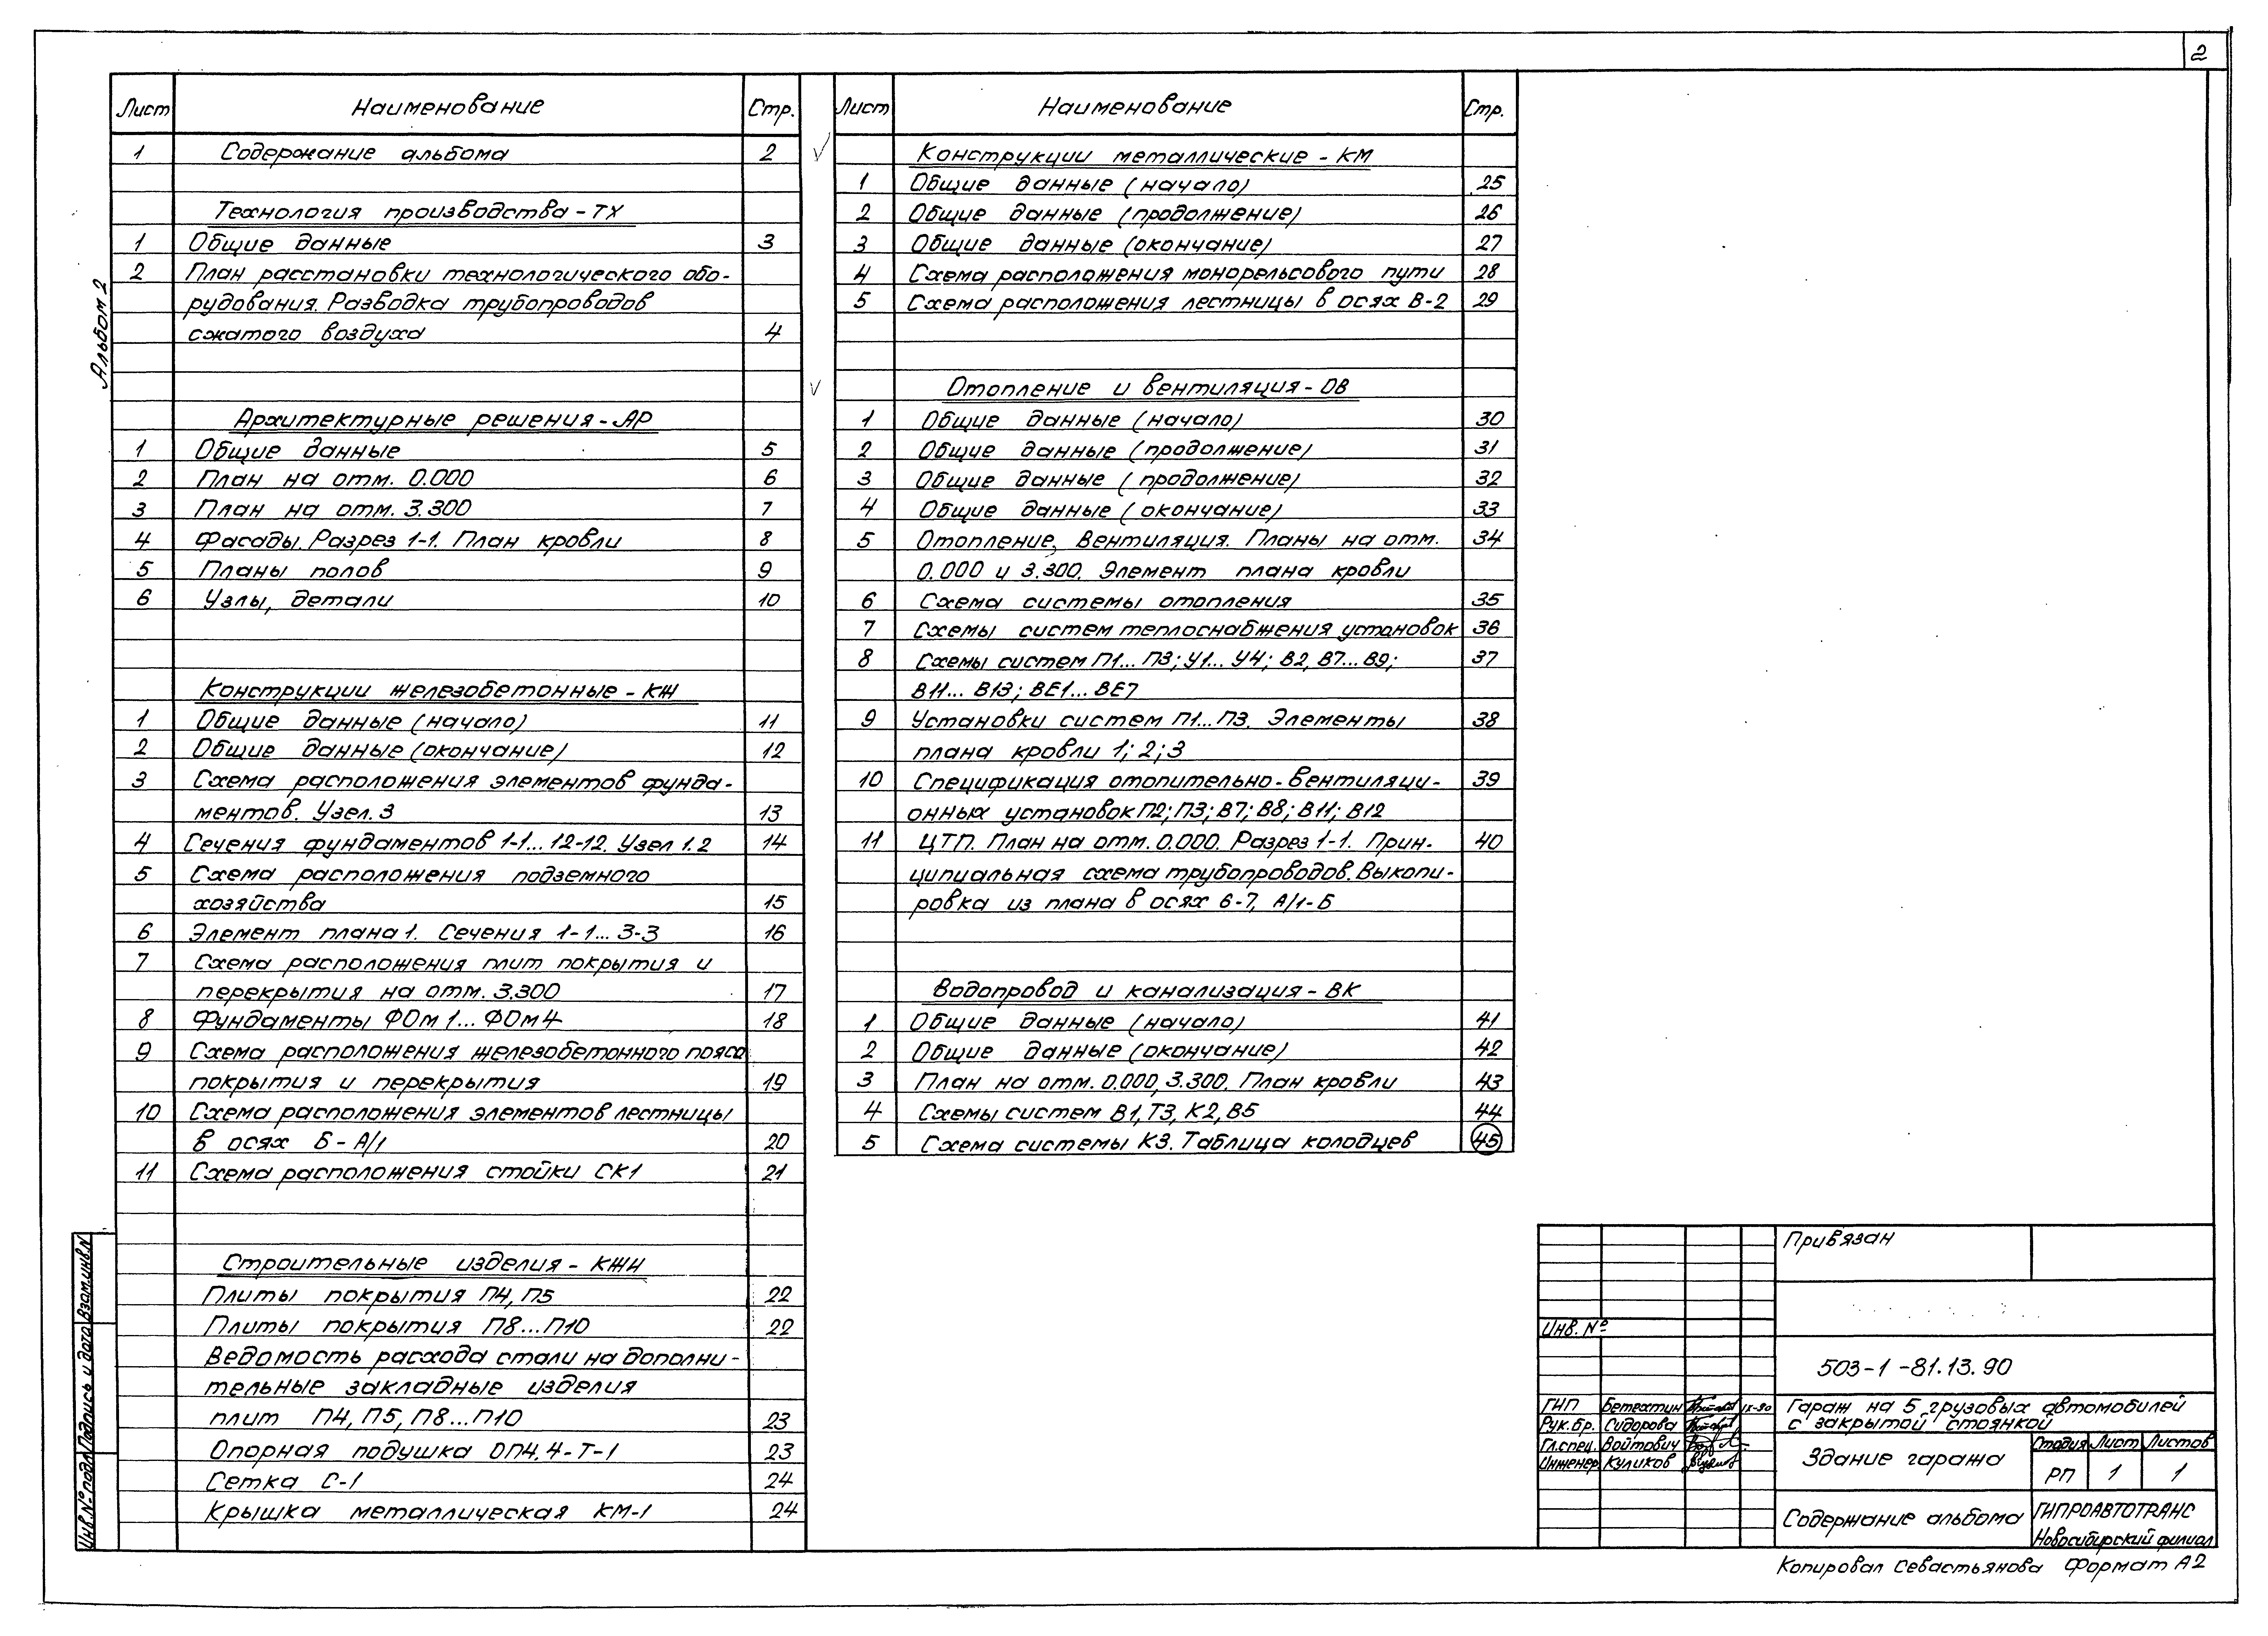 2
Альбом 2
Лист Наименование Стр.
1 Содержание альбома 2
Технология производства - ТХ
1 Общие данные 3
2 План расстановки технологического обо-
рудования. Разводка трубопроводов
сжатого воздуха 4
Архитектурные решения - АР
1 Общие данные 5
2 План на отм. 0.000 6
3 План на отм. 3.300 7
4 Фасады. Разрез 1-1. План кровли 8
5 Планы полов 9
6 Узлы, детали 10
Конструкции железобетонные - КЖ
1 Общие данные (начало) 11
2 Общие данные (окончание) 12
3 Схема расположения элементов фунда-
ментов. Узел. 3 13
4 Сечения фундаментов 1-1... 12-12. Узел 1.2 14
5 Схема расположения подземного
хозяйства 15
6 Элемент плана 1. Сечения 1-1... 3-3 16
7 Схема расположения плит покрытия и
перекрытия на отм. 3.300 17
8 Фундаменты ФОм 1... ФОм 4 18
9 Схема расположения железобетонного пояса
покрытия и перекрытия 19
10 Схема расположения элементов лестницы
в осях Б - А/1 20
11 Схема расположения стойки СК1 21
Строительные изделия - КЖИ
Плиты покрытия П4, П5 22
Плиты покрытия П8... П10 22
Ведомость расхода стали на дополни-
тельные закладные изделия
плит П4, П5, П8... П10 23
Опорная подушка ОП4.4-Т-1 23
Сетка С-1 24
Крышка металлическая КМ-1 24
Лист Наименование Стр.
Конструкции металлические - КМ
1 Общие данные (начало) 25
2 Общие данные (продолжение) 26
3 Общие данные (окончание) 27
4 Схема расположения монорельсового пути 28
5 Схема расположения лестницы в осях В-2 29
Отопление и вентиляция - ОВ
1 Общие данные (начало) 30
2 Общие данные (продолжение) 31
3 Общие данные (продолжение) 32
4 Общие данные (окончание) 33
5 Отопление, Вентиляция. Планы на отм. 34
0.000 и 3.300. Элемент плана кровли
6 Схема системы отопления 35
7 Схемы систем теплоснабжения установок 36
8 Схемы систем П1... П3; У1... У4; В2, В7... В9; 37
В11... В13; ВЕ1... ВЕ7
9 Установки систем П1... П3. Элементы 38
плана кровли 1; 2; 3
10 Спецификация отопительно-вентиляци- 39
онных установок П2; П3; В7; В8; В11; В12
11 ЦТП. План на отм. 0.000. Разрез 1-1. Прин- 40
ципиальная схема трубопроводов. Выкопи-
ровка из плана в осях 6-7, А/1-Б
Водопровод и канализация - ВК
1 Общие данные (начало) 41
2 Общие данные (окончание) 42
3 План на отм. 0.000, 3.300. План кровли 43
4 Схемы систем В1, Т3, К2, В5 44
5 Схема системы К3. Таблица колодцев 45
Инв. № подл. Подпись и дата Взам. инв. N
Привязан
Инв. №
503-1-81.13.90
ГИП Бетехтин IX-90
Рук. бр. Сидорова
Гл. спец. Войтович
Инженер Куликов
Гараж на 5 грузовых автомобилей
с закрытой стоянкой
Здание гаража
Стадия Лист Листов
РП 1 1
Содержание альбома
ГИПРОАВТОТРАНС
Новосибирский филиал
Копировал Севастьянова Формат А2